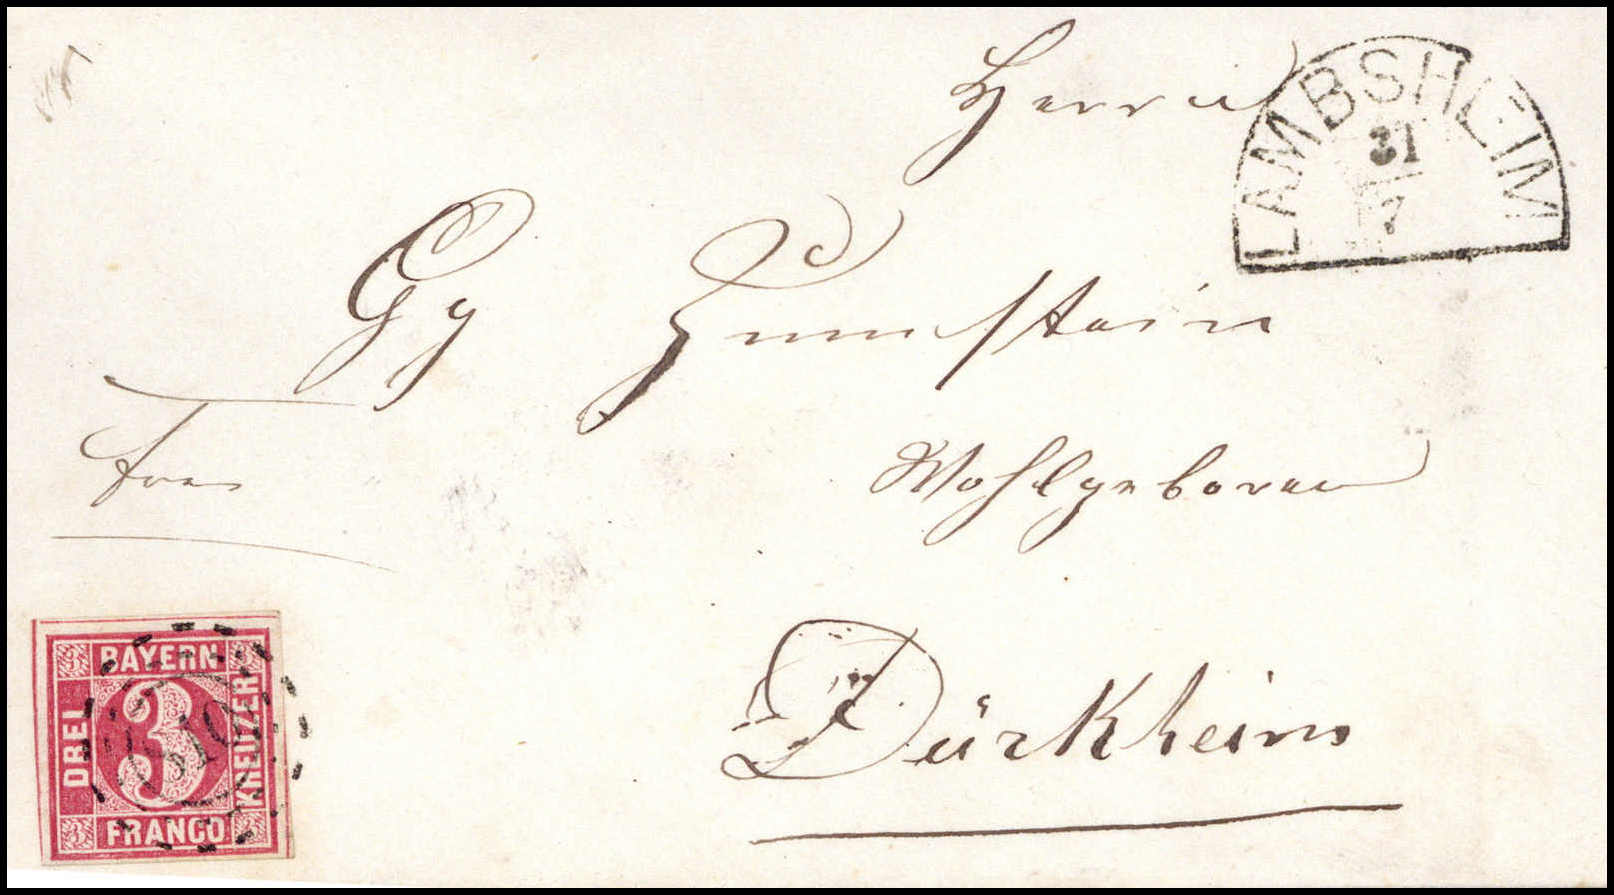 Herrn
LAMBSHEIM
31
7
Gg Zumstein
frei
Wohlgeboren
Dürkheim
BAYERN
DREI
3
KREUZER
FRANCO